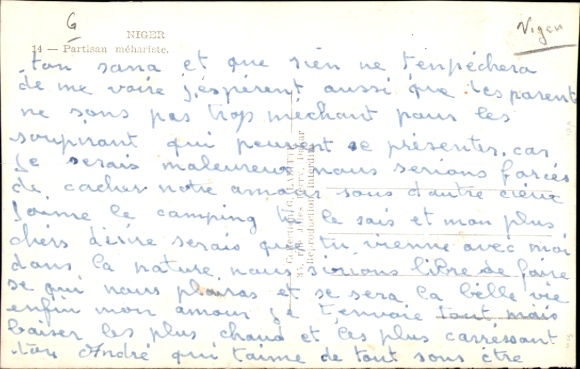 G
Niger
NIGER
14 — Partisan méhariste.
ton sana et que rien ne t'enpéchera
de me voire j'espérent aussi que tes parents
ne sons pas trop méchant pour les
soupirant qui peuvent se présenter car
je serais maleureux nous serions forcés
de cacher notre amour sous d'autre cieux
J'aime le camping tu le sais et mon plus
chers désire serais que tu vienne avec moi
dans la nature nous sirions libre de faire
se qui nous plairas et se sera la bélle vie
enfin mon amour je t'envoie tout mais
baiser les plus chaud et les plus carréssant
ton André qui t'aime de tout sous être
Reproduction interdite